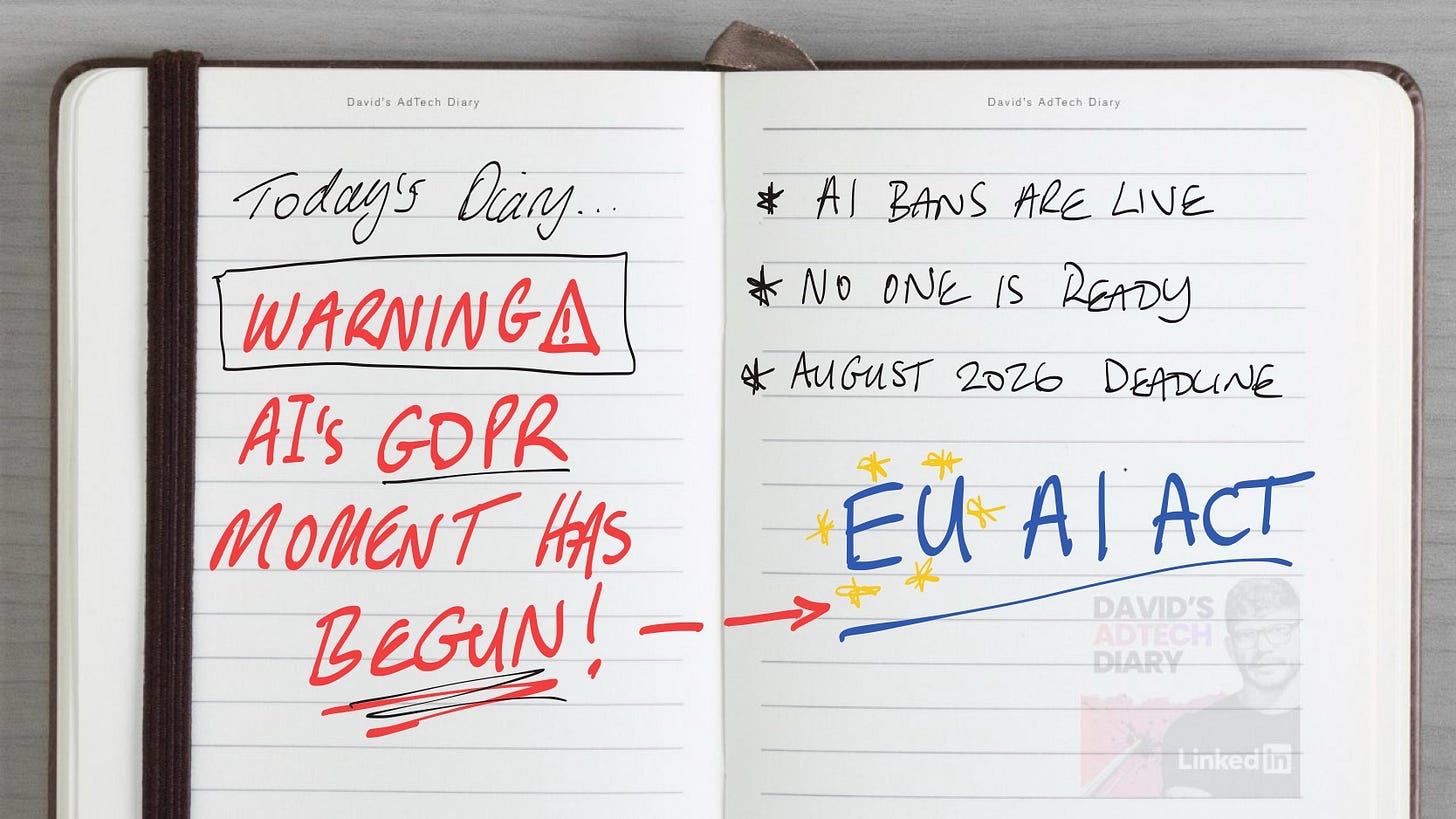 David's AdTech Diary
Today's Diary...
WARNING⚠
AI's GDPR
MOMENT HAS
BEGUN!
David's AdTech Diary
* AI BANS ARE LIVE
* NO ONE IS READY
* AUGUST 2026 DEADLINE
EU AI ACT
DAVID'S
ADTECH
DIARY
LinkedIn